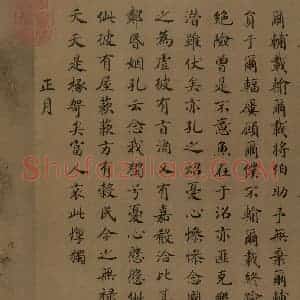 爾輔載輸爾載將伯助予無棄爾輔
員于爾輻屢顧爾僕不輸爾載終踰
絕險曾是不意魚在于沼亦匪克樂
潛雖伏矣亦孔之炤憂心慘慘念國
之為虐彼有旨酒又有嘉殽洽比其
鄰昏姻孔云念我獨兮憂心慇慇佌
佌彼有屋蔌蔌方有穀民今之無祿
天夭是椓哿矣富人哀此惸獨
正月